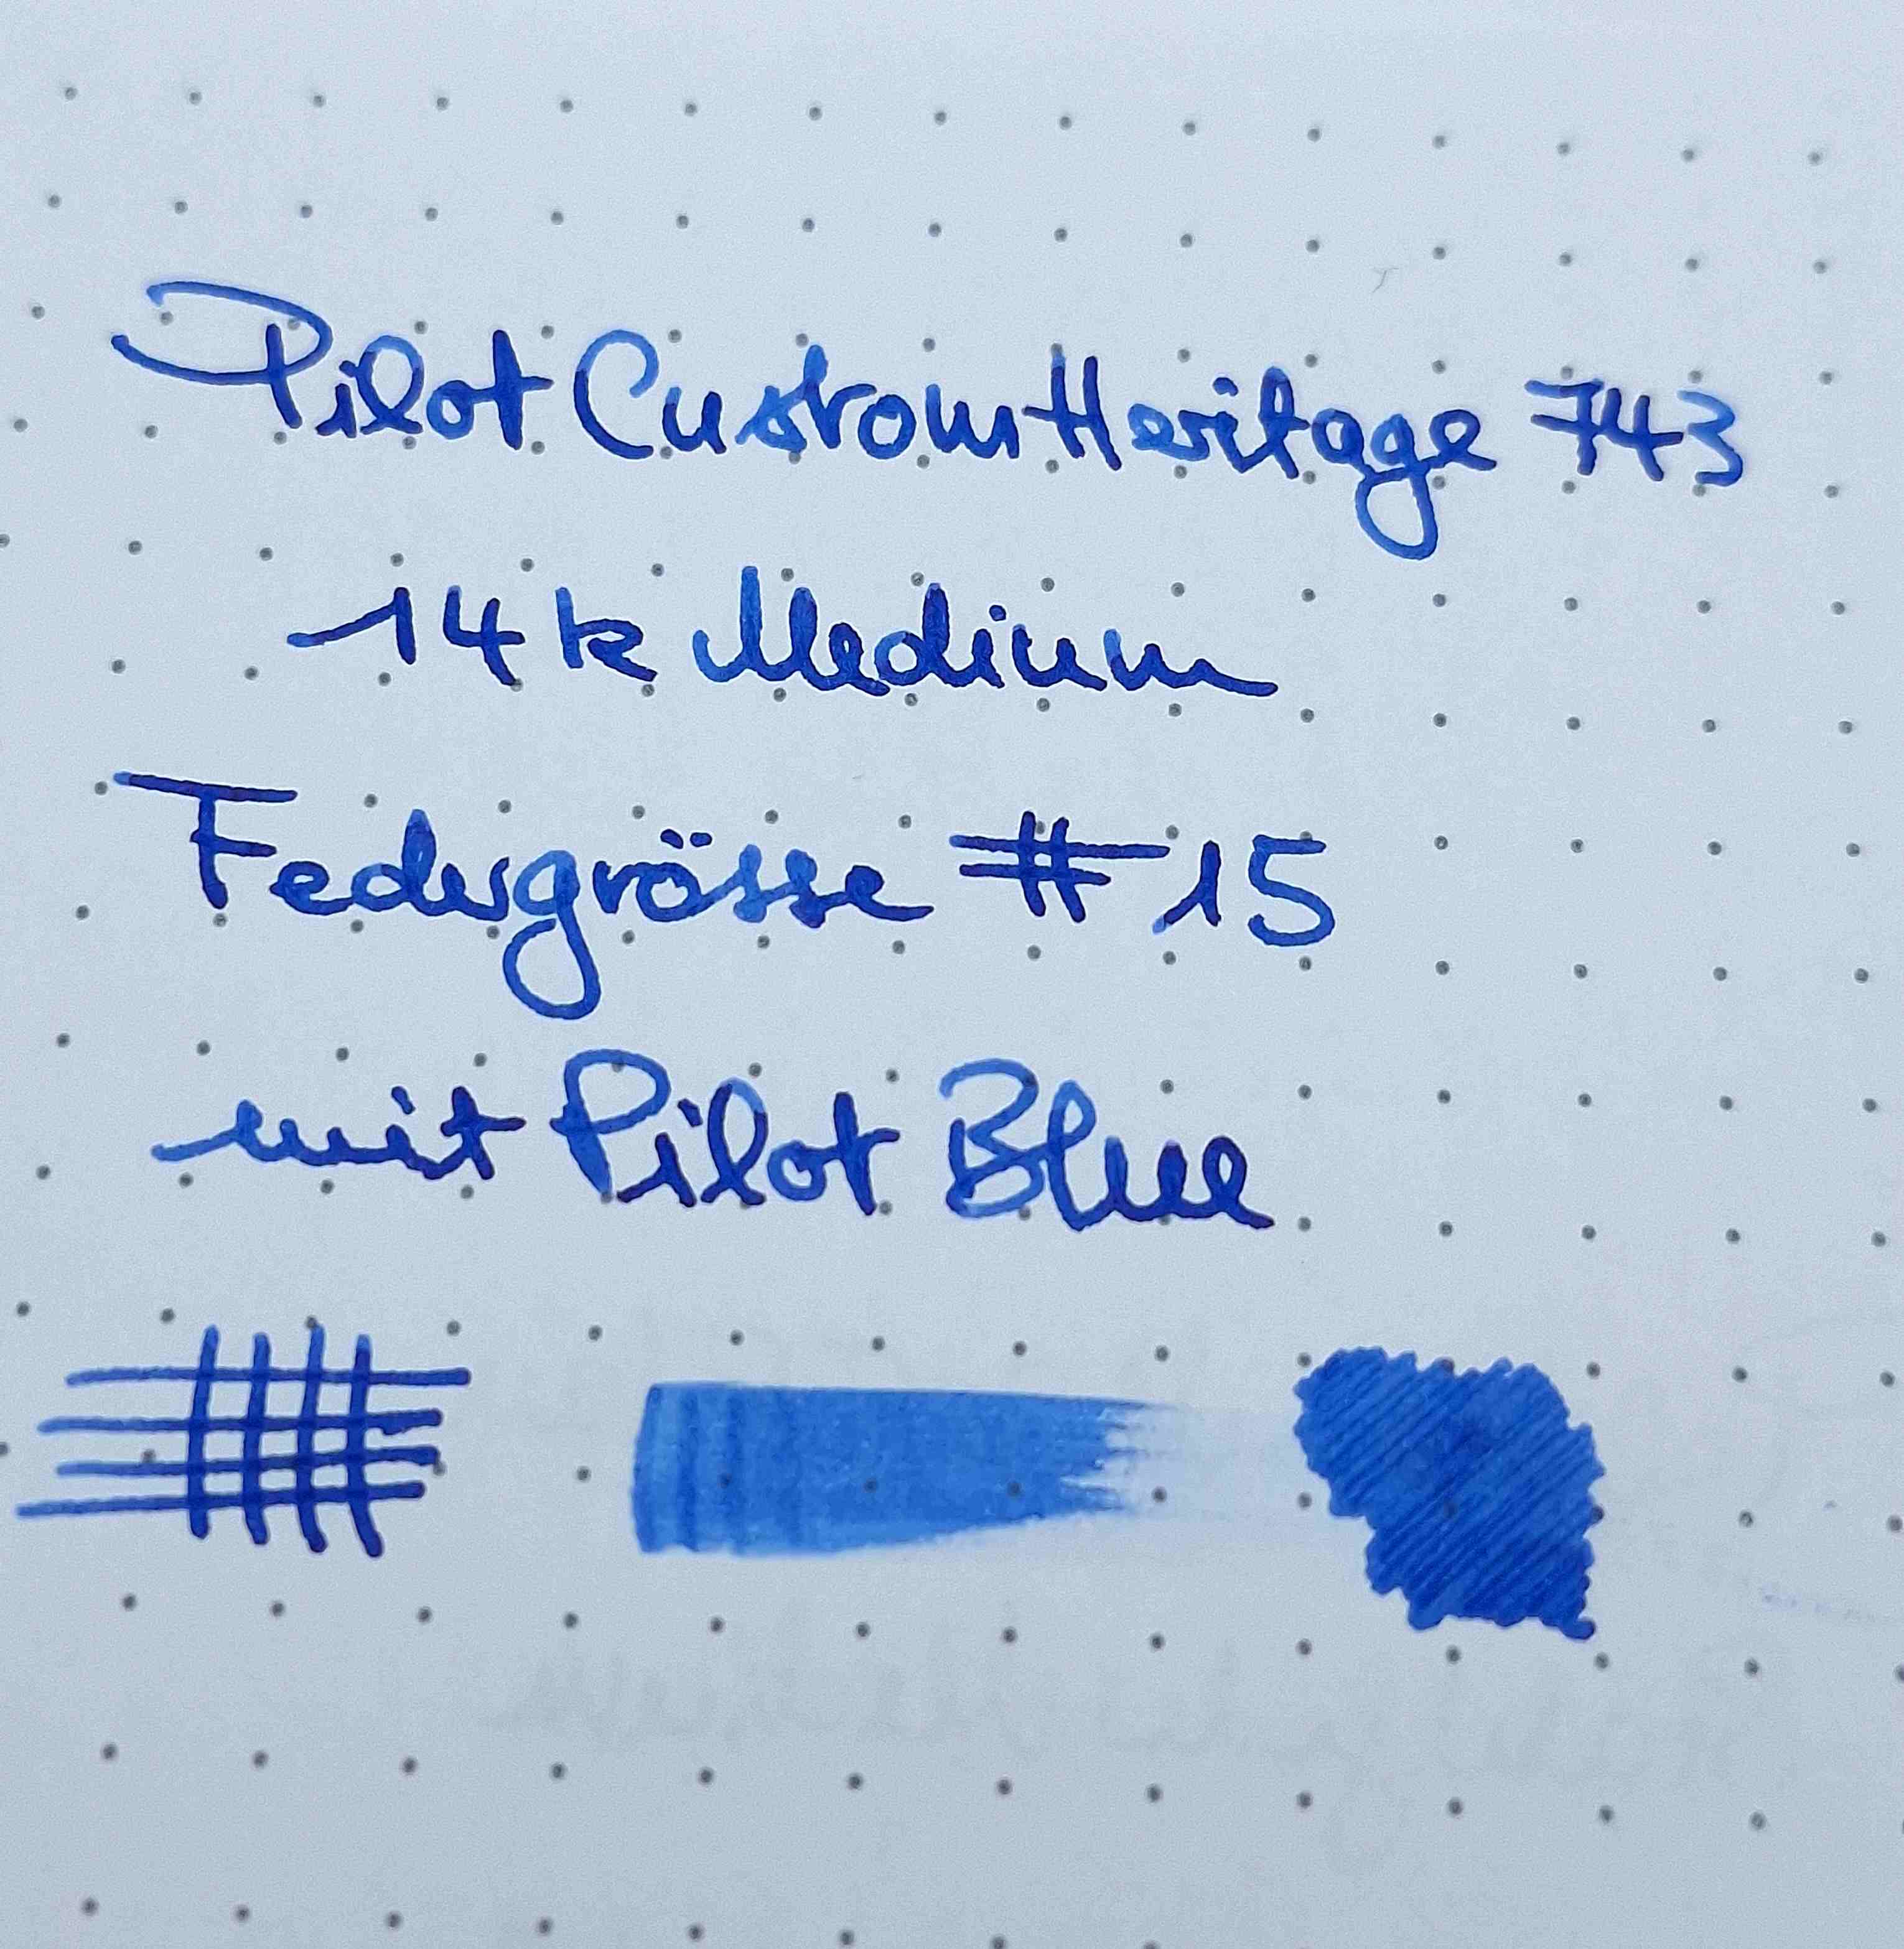 Pilot Custom Heritage 743
14k Medium
Federgrösse #15
mit Pilot Blue